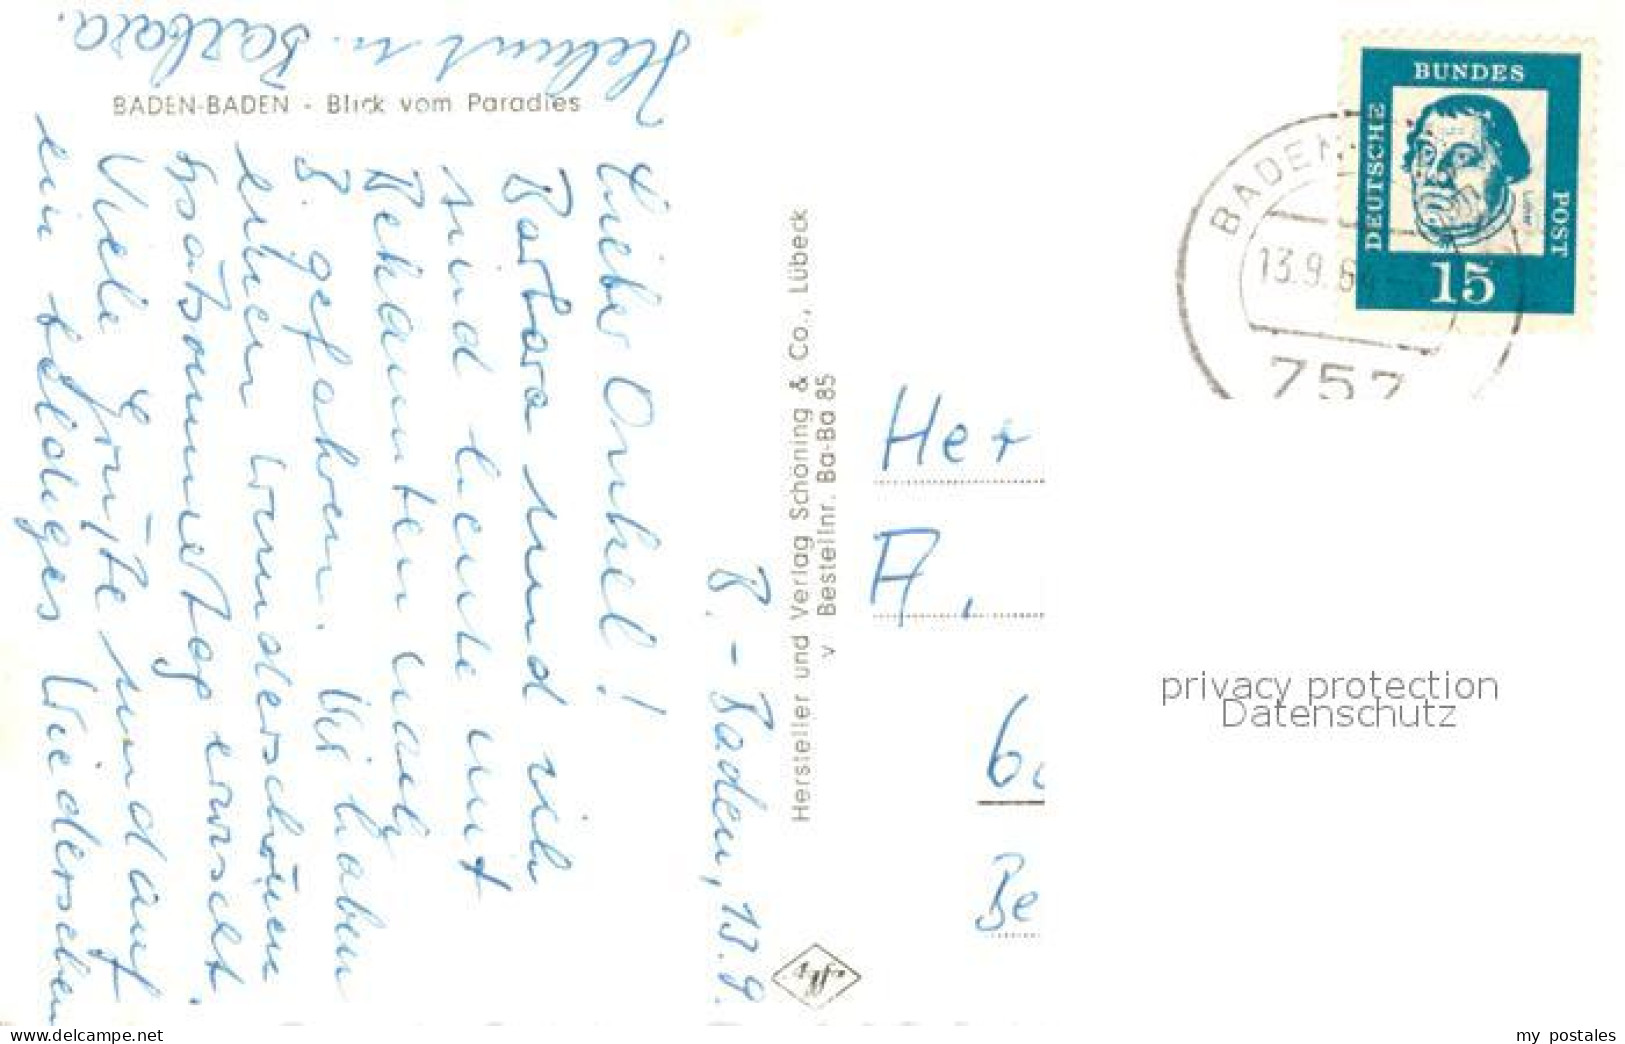 BADEN-BADEN - Blick vom Paradies
B.-Baden, 13.9.
Lieber Onkel!
Barbara und ich
sind heute mit
Bekannten nach
B. gefahren. Wir haben
einen wunderschönen
Spätsommertag erwischt.
Viele Grüße und auf
ein baldiges Wiedersehen
Helmut u. Barbara.
Hersteller und Verlag Schöning & Co., Lübeck
v Bestellnr. Ba-Ba 85
DEUTSCHE
BUNDES
POST
Luther
15
BADEN
13.9.64
757
Her
A.
6
Be
privacy protection
Datenschutz
www.delcampe.net
my_postales